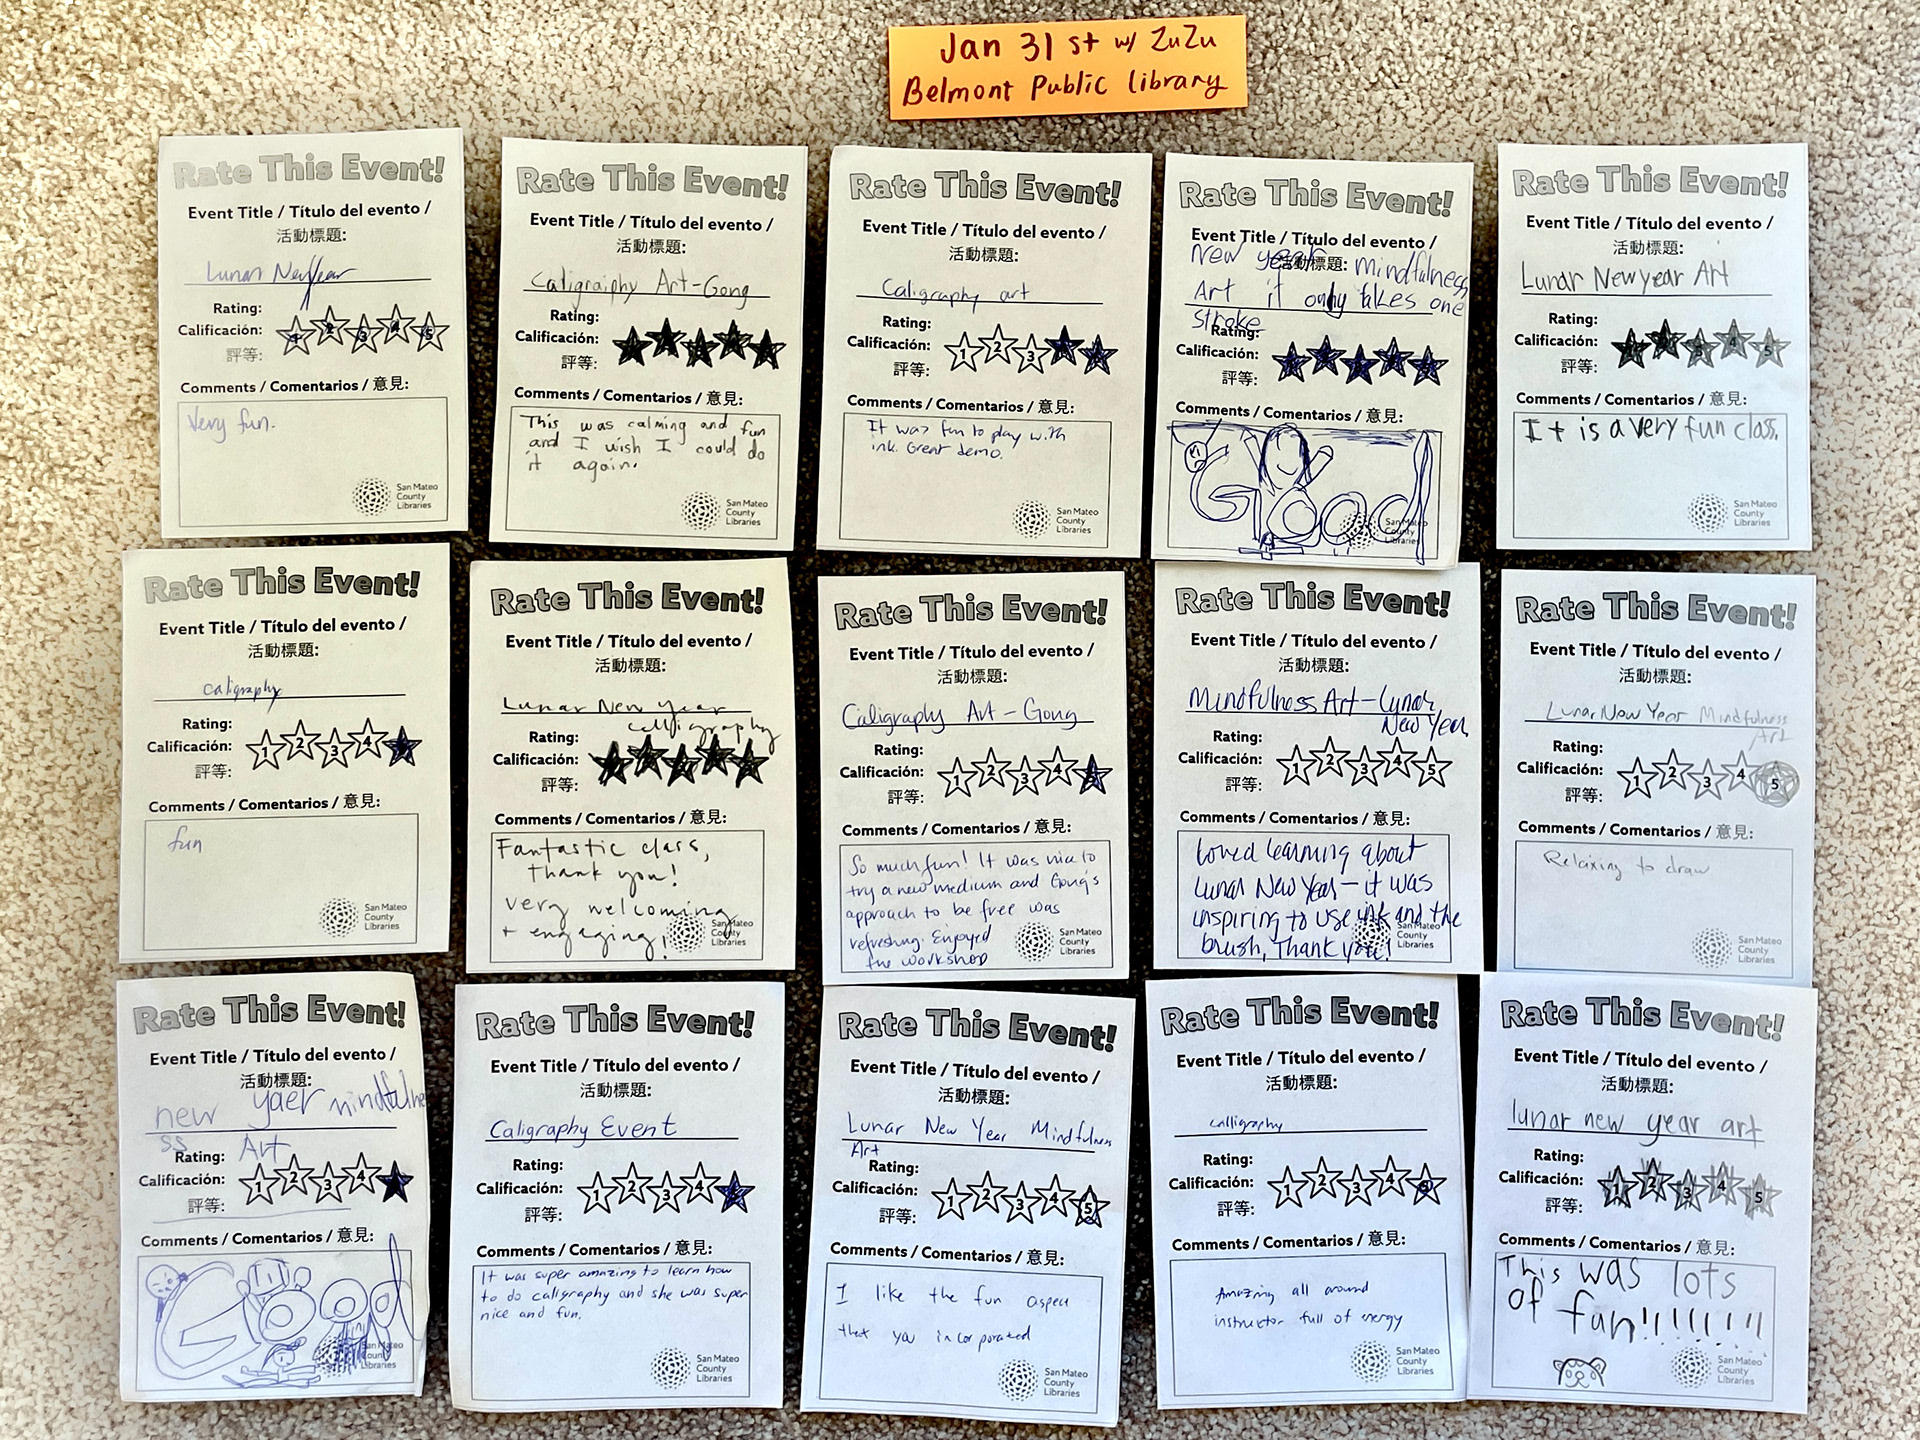 Jan 31st w/ ZuZu
Belmont Public library
Rate This Event!
Event Title / Título del evento /
活動標題:
Lunar New Year
Rating:
Calificación:
評等:
1 2 3 4 5
Comments / Comentarios / 意見:
Very fun.
San Mateo
County
Libraries
Rate This Event!
Event Title / Título del evento /
活動標題:
Caligraiphy Art-Gong
Rating:
Calificación:
評等:
Comments / Comentarios / 意見:
This was calming and fun
and I wish I could do
it again.
San Mateo
County
Libraries
Rate This Event!
Event Title / Título del evento /
活動標題:
Caligraphy art
Rating:
Calificación:
評等:
1 2 3
Comments / Comentarios / 意見:
It was fun to play with
ink. Great demo.
San Mateo
County
Libraries
Rate This Event!
Event Title / Título del evento /
活動標題:
New year mindfulness
Art it only takes one
stroke
Rating:
Calificación:
評等:
Comments / Comentarios / 意見:
Good
San Mateo
County
Libraries
Rate This Event!
Event Title / Título del evento /
活動標題:
Lunar Newyear Art
Rating:
Calificación:
評等:
3 4 5
Comments / Comentarios / 意見:
It is a very fun class.
San Mateo
County
Libraries
Rate This Event!
Event Title / Título del evento /
活動標題:
caligraphy
Rating:
Calificación:
評等:
1 2 3 4
Comments / Comentarios / 意見:
fun
San Mateo
County
Libraries
Rate This Event!
Event Title / Título del evento /
活動標題:
Lunar New Year
calligraphy
Rating:
Calificación:
評等:
Comments / Comentarios / 意見:
Fantastic class,
thank you!
very welcoming
+ engaging!
San Mateo
County
Libraries
Rate This Event!
Event Title / Título del evento /
活動標題:
Caligraphy Art - Gong
Rating:
Calificación:
評等:
1 2 3 4
Comments / Comentarios / 意見:
So much fun! It was nice to
try a new medium and Gong's
approach to be free was
refreshing. Enjoyed
the workshop
San Mateo
County
Libraries
Rate This Event!
Event Title / Título del evento /
活動標題:
Mindfulness Art - Lunar
New Year
Rating:
Calificación:
評等:
1 2 3 4 5
Comments / Comentarios / 意見:
Loved learning about
Lunar New Year - it was
inspiring to use ink and the
brush, Thank you!
San Mateo
County
Libraries
Rate This Event!
Event Title / Título del evento /
活動標題:
Lunar New Year Mindfulness
Art
Rating:
Calificación:
評等:
1 2 3 4 5
Comments / Comentarios / 意見:
Relaxing to draw
San Mateo
County
Libraries
Rate This Event!
Event Title / Título del evento /
活動標題:
new yaer mindfulne
ss Art
Rating:
Calificación:
評等:
1 2 3 4
Comments / Comentarios / 意見:
Good
San Mateo
County
Libraries
Rate This Event!
Event Title / Título del evento /
活動標題:
Caligraphy Event
Rating:
Calificación:
評等:
1 2 3 4
Comments / Comentarios / 意見:
It was super amazing to learn how
to do caligraphy and she was super
nice and fun.
San Mateo
County
Libraries
Rate This Event!
Event Title / Título del evento /
活動標題:
Lunar New Year Mindfulness
Art
Rating:
Calificación:
評等:
1 2 3 4 5
Comments / Comentarios / 意見:
I like the fun aspect
that you incorporated
San Mateo
County
Libraries
Rate This Event!
Event Title / Título del evento /
活動標題:
calligraphy
Rating:
Calificación:
評等:
1 2 3 4 5
Comments / Comentarios / 意見:
Amazing all around
instructor full of energy
San Mateo
County
Libraries
Rate This Event!
Event Title / Título del evento /
活動標題:
lunar new year art
Rating:
Calificación:
評等:
1 2 3 4 5
Comments / Comentarios / 意見:
This was lots
of fun!!!!!!!
San Mateo
County
Libraries